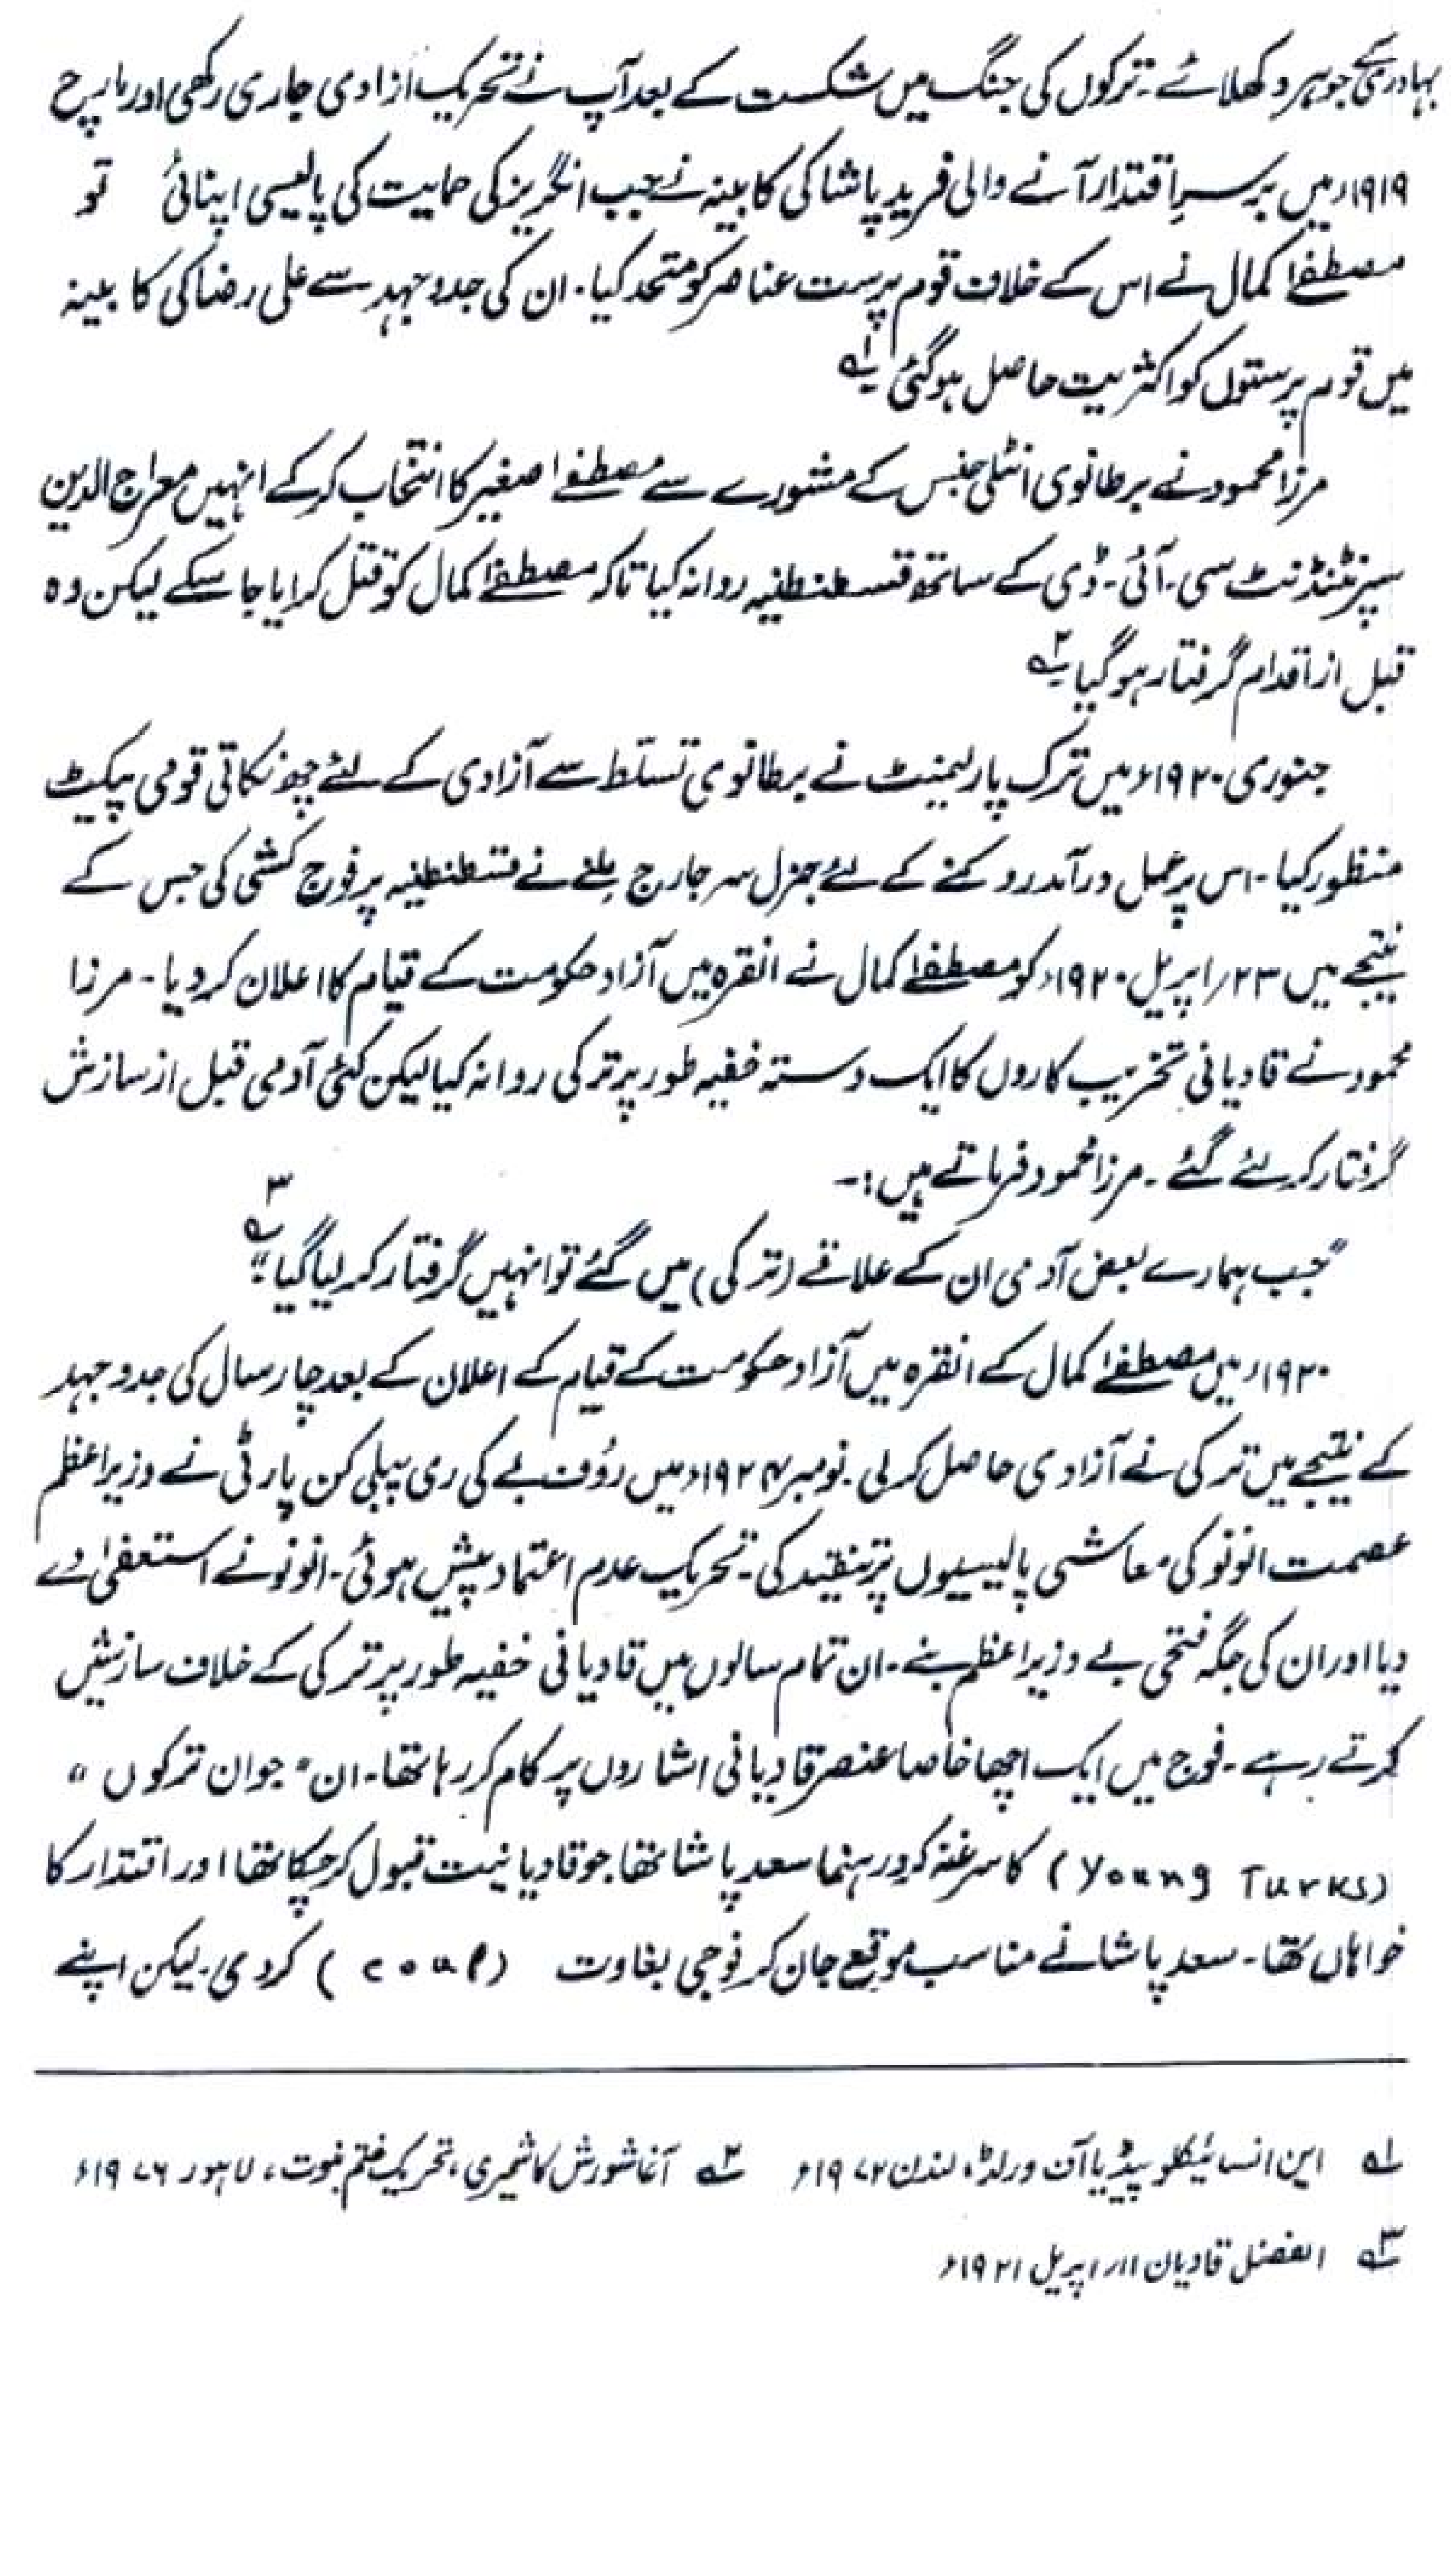 بہادری کے جوہر دکھلائے۔ ترکوں کی جنگ میں شکست کے بعد آپ نے تحریک آزادی جاری رکھی اور مارچ
۱۹۱۹ء میں برسرِ اقتدار آنے والی فرید پاشا کی کابینہ نے جب انگریز کی حمایت کی پالیسی اپنائی تو
مصطفےٰ کمال نے اس کے خلاف قوم پرست عناصر کو متحد کیا۔ ان کی جدوجہد سے علی رضا کی کابینہ
میں قوم پرستوں کو اکثریت حاصل ہوگئی ۱؎
مرزا محمود نے برطانوی انٹیلی جنس کے مشورے سے مصطفےٰ صغیر کا انتخاب کرکے انہیں معراج الدین
سپرنٹنڈنٹ سی۔آئی۔ڈی کے ساتھ قسطنطنیہ روانہ کیا تاکہ مصطفےٰ کمال کو قتل کرایا جا سکے لیکن وہ
قبل از اقدام گرفتار ہوگیا ۲؎
جنوری ۱۹۲۰ء میں ترک پارلیمنٹ نے برطانوی تسلّط سے آزادی کے لئے چھ نکاتی قومی پیکٹ
منظور کیا۔ اس پر عمل درآمد روکنے کے لئے جنرل سر جارج ملنے نے قسطنطنیہ پر فوج کشی کی جس کے
نتیجے میں ۲۳؍اپریل ۱۹۲۰ء کو مصطفےٰ کمال نے انقرہ میں آزاد حکومت کے قیام کا اعلان کر دیا۔ مرزا
محمود نے قادیانی تخریب کاروں کا ایک دستہ خفیہ طور پر ترکی روانہ کیا لیکن کئی آدمی قبل از سازش
گرفتار کر لئے گئے۔ مرزا محمود فرماتے ہیں :۔
"جب ہمارے بعض آدمی ان کے علاقے (ترکی) میں گئے تو انہیں گرفتار کر لیا گیا" ۳؎
۱۹۲۰ء میں مصطفےٰ کمال کے انقرہ میں آزاد حکومت کے قیام کے اعلان کے بعد چار سال کی جدوجہد
کے نتیجے میں ترکی نے آزادی حاصل کر لی۔ نومبر ۱۹۲۴ء میں رؤف بے کی ری پبلی کن پارٹی نے وزیر اعظم
عصمت انونو کی معاشی پالیسیوں پر تنقید کی۔ تحریک عدم اعتماد پیش ہوئی۔ انونو نے استعفیٰ دے
دیا اور ان کی جگہ فتحی بے وزیر اعظم بنے۔ ان تمام سالوں میں قادیانی خفیہ طور پر ترکی کے خلاف سازشیں
کرتے رہے۔ فوج میں ایک اچھا خاصا عنصر قادیانی اشاروں پر کام کر رہا تھا۔ ان "جوان ترکوں"
(Young Turks) کا سرغنہ کرد رہنما سعد پاشا تھا جو قادیانیت قبول کر چکا تھا اور اقتدار کا
خواہاں تھا۔ سعد پاشا نے مناسب موقع جان کر فوجی بغاوت (coup) کر دی۔ لیکن اپنے
۱؎ این انسائیکلوپیڈیا آف ورلڈ، لندن ۱۹۷۲ء ۲؎ آغا شورش کاشمیری، تحریک ختم نبوت، لاہور ۱۹۷۶ء
۳؎ الفضل قادیان ۱۱؍اپریل ۱۹۲۱ء